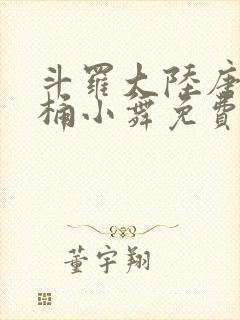 斗羅大陸唐
桶小舞免費
董宇翔